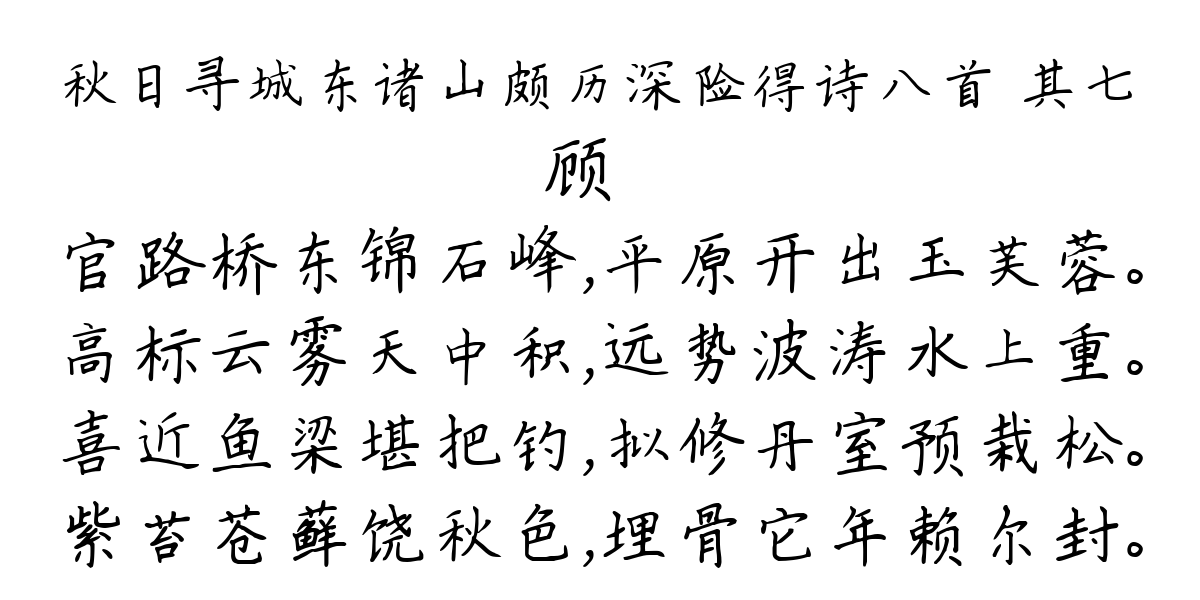 秋日寻城东诸山颇历深险得诗八首 其七
顾
官路桥东锦石峰,平原开出玉芙蓉。
高标云雾天中积,远势波涛水上重。
喜近鱼梁堪把钓,拟修丹室预栽松。
紫苔苍藓饶秋色,埋骨它年赖尔封。